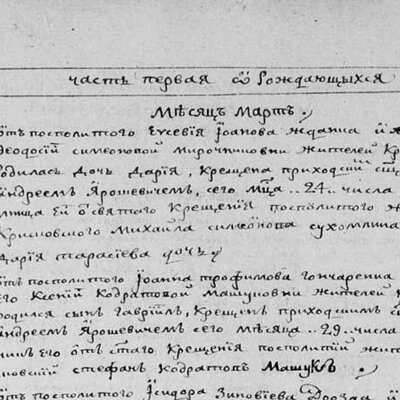 часть первая ѿ Рождающыхся
Мѣсяцъ Мартъ.
отъ посполитого Еѵсевія Іоанова Жданна и я
Ѳеодосій симеоновой Мирочниковни жителей Кр
родилась дочь Дарія, Крещена приходскимъ сщ
Андреемъ Ярошевичемъ, сего мца .. 24. числа
святаго Крещенія посполитого ж
Крисковского Михаила симеонова сухомлина
Дарія тарасіева дочь
отъ посполитого Іоанна трофимова гончаренка
его Ксеній Кодратовой Машуковни жителей
родился сынъ гавріилъ, Крещенъ приходскимъ с
Андреемъ Ярошевичемъ сего мѣсяца .. 29. числа
его отъ стаго Крещенія посполитій жите
стефанъ Кодратовъ Машукъ.
отъ посполитого Ісидора Зиновіева Дрозда и